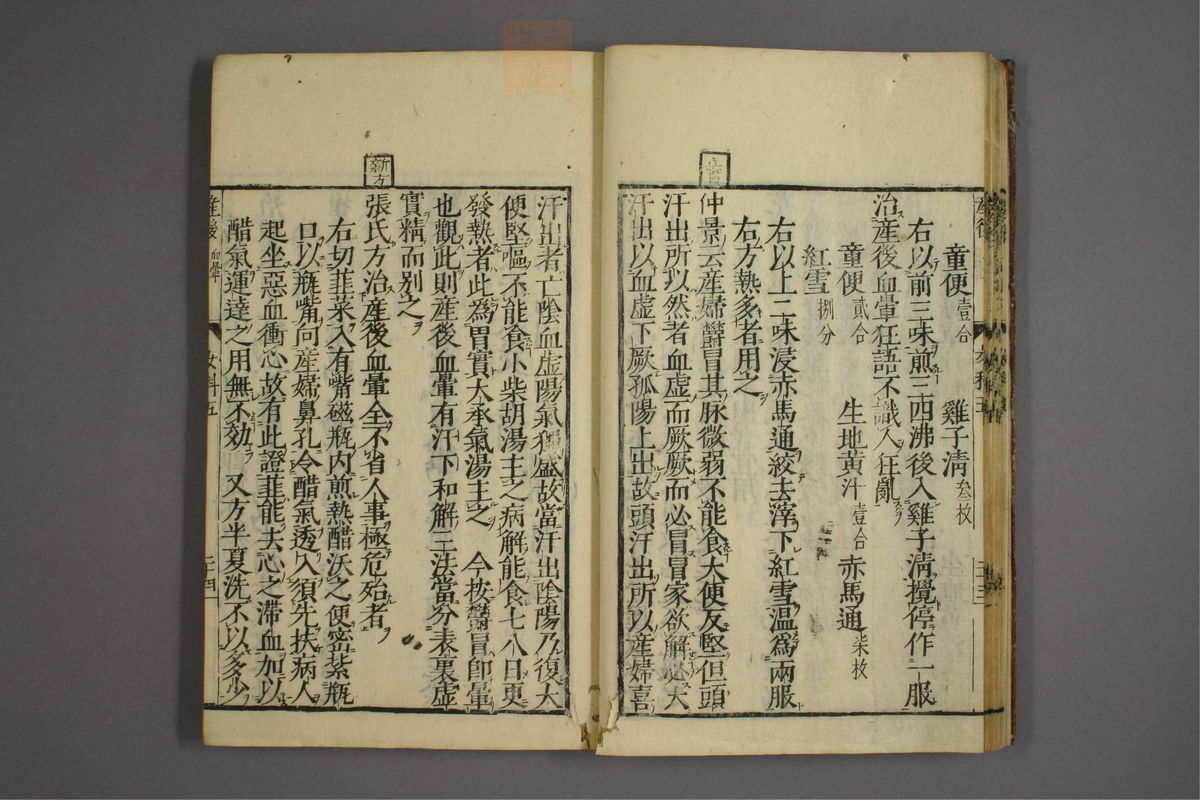 童便壹合　雞子清叄枚
右以前三味煎三四沸後入雞子清攪停作一服
治産後血暈狂語不識人狂亂
童便貳合　生地黄汁壹合　赤馬通柒枚
紅雪捌分
右以上三味浸赤馬通絞去滓下紅雪温爲兩服
右方熱多者用之
仲景云産婦欝冒其脉微弱不能食大便反堅但頭
汗出所以然者血虚而厥厥而必冒冒家欲解必大
汗出以血虚下厥孤陽上出故頭汗出所以産婦喜
汗出者亡陰血虚陽氣獨盛故當汗出陰陽乃復大
便堅嘔不能食小柴胡湯主之病解能食七八日更
發熱者此爲胃實大承氣湯主之　今按欝冒即暈
也觀此則産後血暈有汗下和解三法當分表裏虚
實精而別之
新方
張氏方治産後血暈全不省人事極危殆者
右切韮菜入有嘴磁瓶内煎熱醋沃之便密紮瓶
口以瓶嘴向産婦鼻孔令醋氣透入須先扶病人
起坐惡血衝心故有此證韮能去心之滯血加以
醋氣運達之用無不効　又方半夏洗不以多少
産後　血暈　女科五　三十四